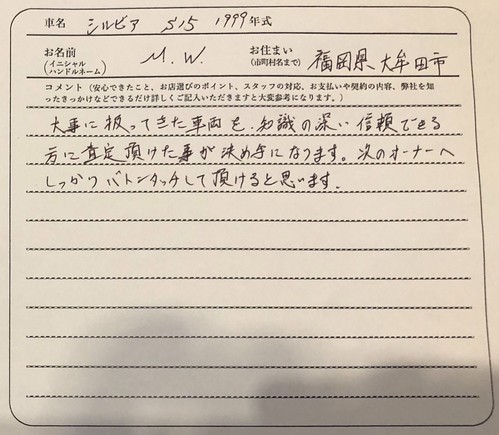 車名 シルビア S15 1999年式
お名前 (イニシャル ハンドルネーム) M.W. お住まい (市町村名まで) 福岡県、大牟田市
コメント(安心できたこと、お店選びのポイント、スタッフの対応、お支払いや契約の内容、弊社を知
ったきっかけなどできるだけ詳しくご記入いただきますと大変参考になります。)
大事に扱ってきた車両を、知識の深い信頼できる
方に査定頂けた事が決め手になります。次のオーナーへ
しっかりバトンタッチして頂けると思います。